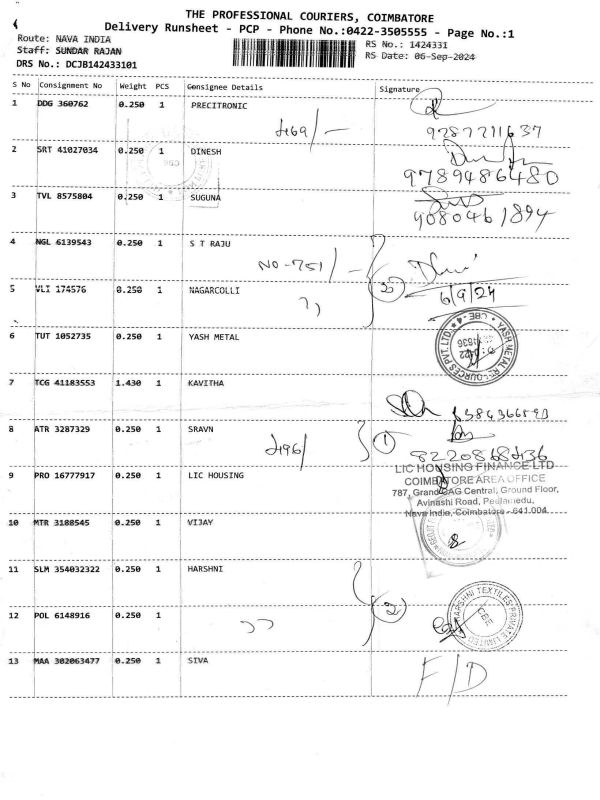 THE PROFESSIONAL COURIERS, COIMBATORE
Delivery Runsheet - PCP - Phone No.:0422-3505555 - Page No.:1
Route: NAVA INDIA
RS No.: 1424331
Staff: SUNDAR RAJAN
RS Date: 06-Sep-2024
DRS No.: DCJB142433101
S No Consignment No Weight PCS Consignee Details Signature
1 DDG 360762 0.250 1 PRECITRONIC
2 SRT 41027034 0.250 1 DINESH
9789486480
3 TVL 8575804 0.250 1 SUGUNA
9080461894
4 NGL 6139543 0.250 1 S T RAJU
NO-751/-
5 VLI 174576 0.250 1 NAGARCOLLI
6/9/24
6 TUT 1052735 0.250 1 YASH METAL
YASH METAL RESOURCES PVT.LTD. CBE-4
7 TCG 41183553 1.430 1 KAVITHA
8 ATR 3287329 0.250 1 SRAVN
9 PRO 16777917 0.250 1 LIC HOUSING
LIC HOUSING FINANCE LTD
COIMBATORE AREA OFFICE
787, Grand CAG Central, Ground Floor,
Avinashi Road, Peelamedu,
Nava India, Coimbatore - 641 004.
10 MTR 3188545 0.250 1 VIJAY
11 SLM 354032322 0.250 1 HARSHNI
HARSHNI TEXTILES PRIVATE LIMITED
CBE
12 POL 6148916 0.250 1
13 MAA 302063477 0.250 1 SIVA
F/D